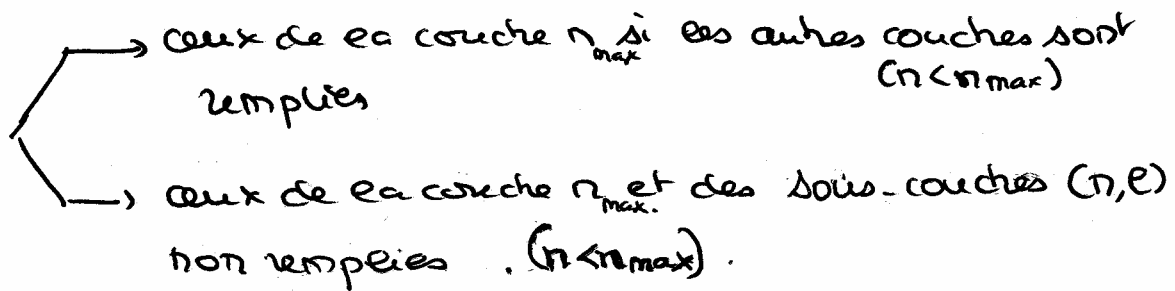 → ceux de la couche n_max si les autres couches sont
(n<n_max)
remplies
→ ceux de la couche n_max. et des sous-couches (n,l)
non remplies . (n<n_max).